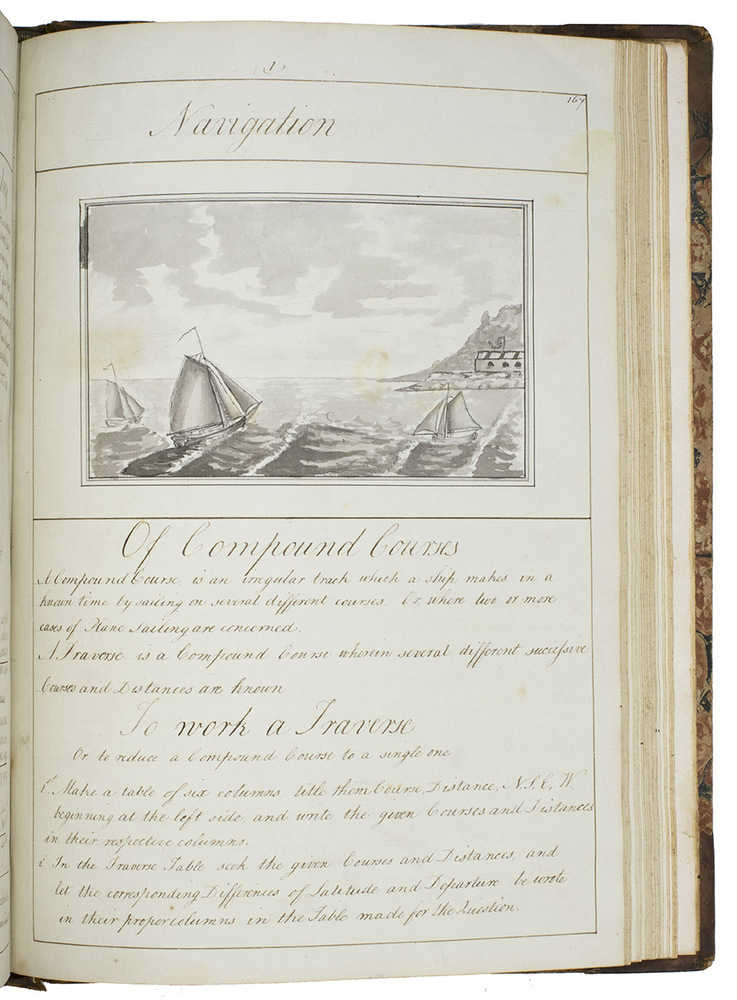 1
167
Navigation
Of Compound Courses
A Compound Course, is an irregular track which a ship makes in a
known time by sailing on several different courses. Or, where two or more
cases of Plane Sailing are concerned.
A Traverse is a Compound Course wherein several different successive
Courses and Distances are known
To work a Traverse
Or to reduce a Compound Course to a single one
1st Make a table of six columns title them Course, Distance, N, S, E, W.
beginning at the left side, and write the given Courses and Distances
in their respective columns.
2 In the Traverse Table seek the given Courses and Distances, and
let the corresponding Differences of Latitude and Departure be wrote
in their proper columns in the Table made for the Question.